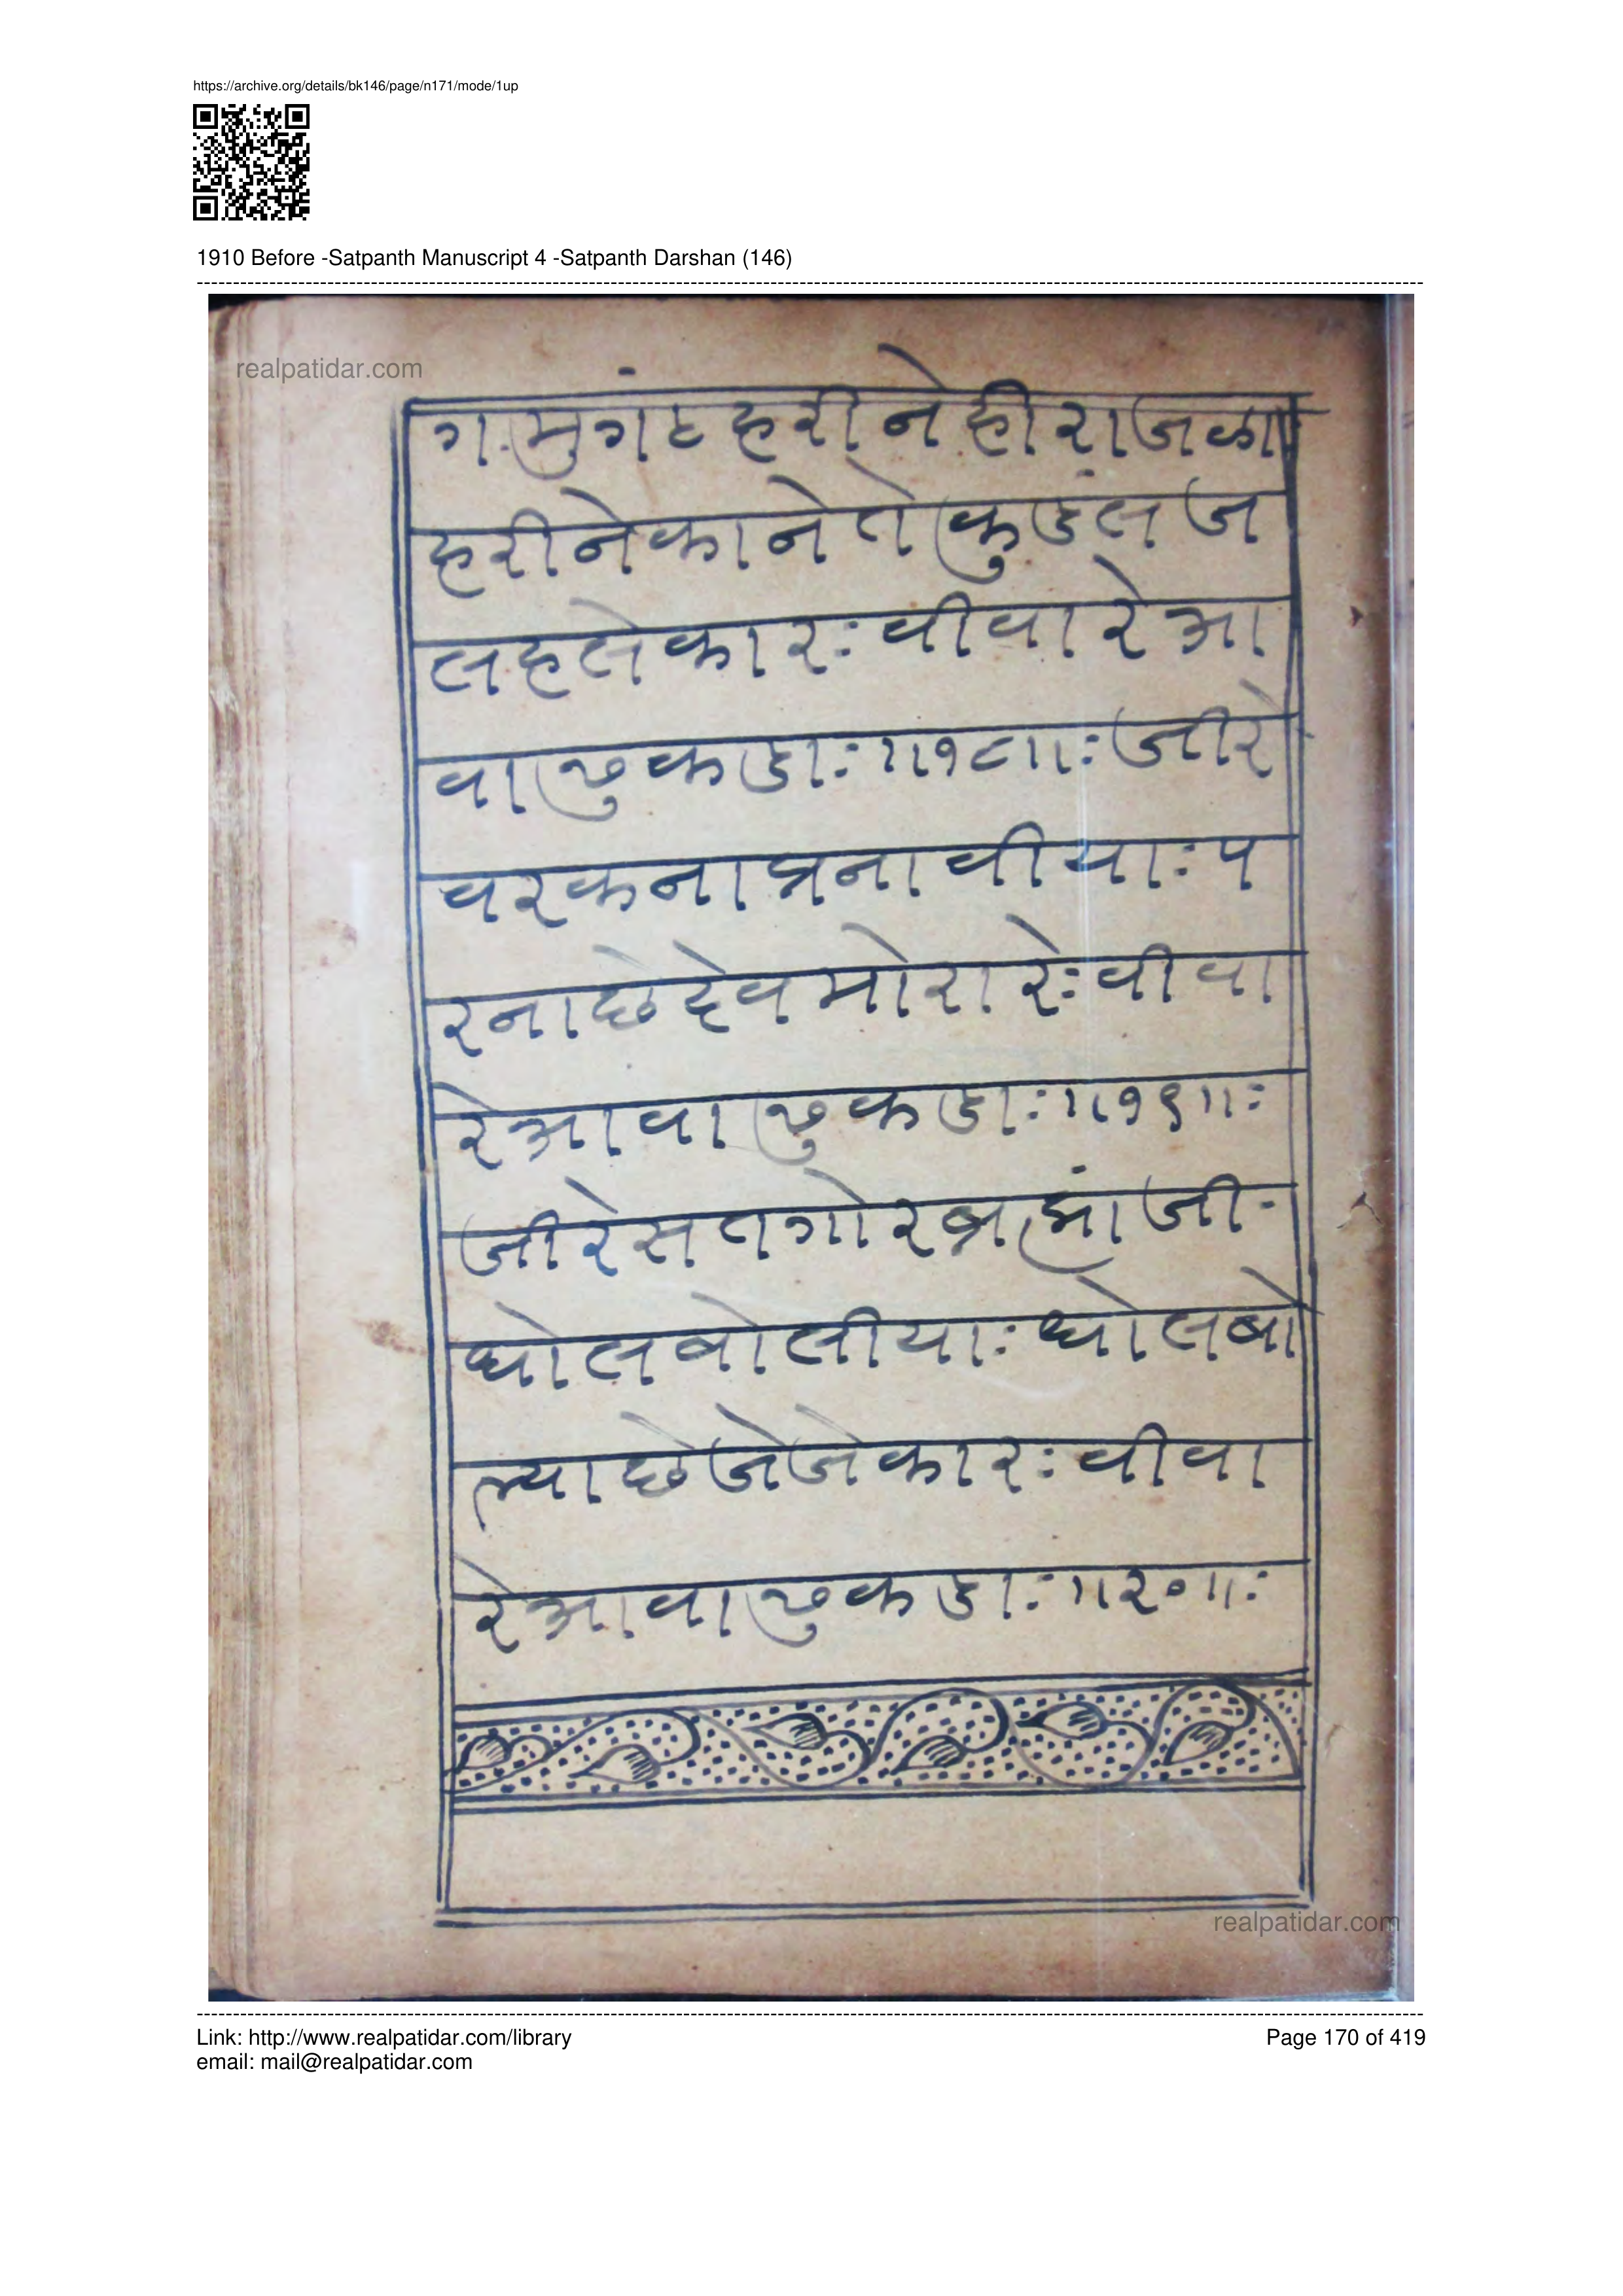 https://archive.org/details/bk146/page/n171/mode/1up
1910 Before -Satpanth Manuscript 4 -Satpanth Darshan (146)
realpatidar.com
ग मुगंट हरी ने हीरा जळा
हरी ने का ने ते कुडंल ज
लहले कार: वीवा रे आ
वा ढुकडा: ॥१८॥: जीरे
वरकना प्रनावीया: प
रना छे देव मोरारे: वीवा
रे आवा ढुकडा: ॥१९॥:
जीरे सतगोर ब्रह्मां जी
धोल बोलीया: धोल बो
ल्या छे जे जे कार: वीवा
रे आवा ढुकडा: ॥२०॥:
realpatidar.com
Link: http://www.realpatidar.com/library
Page 170 of 419
email: mail@realpatidar.com